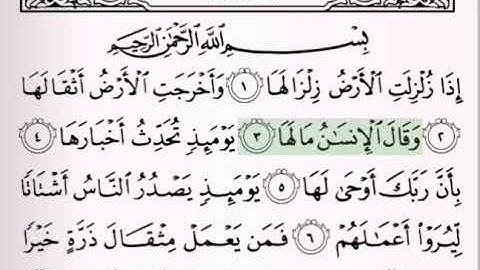 بِسْمِ اللَّهِ الرَّحْمَٰنِ الرَّحِيمِ
إِذَا زُلْزِلَتِ الْأَرْضُ زِلْزَالَهَا ١ وَأَخْرَجَتِ الْأَرْضُ أَثْقَالَهَا
٢ وَقَالَ الْإِنسَٰنُ مَا لَهَا ٣ يَوْمَئِذٍ تُحَدِّثُ أَخْبَارَهَا ٤
بِأَنَّ رَبَّكَ أَوْحَىٰ لَهَا ٥ يَوْمَئِذٍ يَصْدُرُ النَّاسُ أَشْتَاتًا
لِّيُرَوْا أَعْمَٰلَهُمْ ٦ فَمَن يَعْمَلْ مِثْقَالَ ذَرَّةٍ خَيْرًا